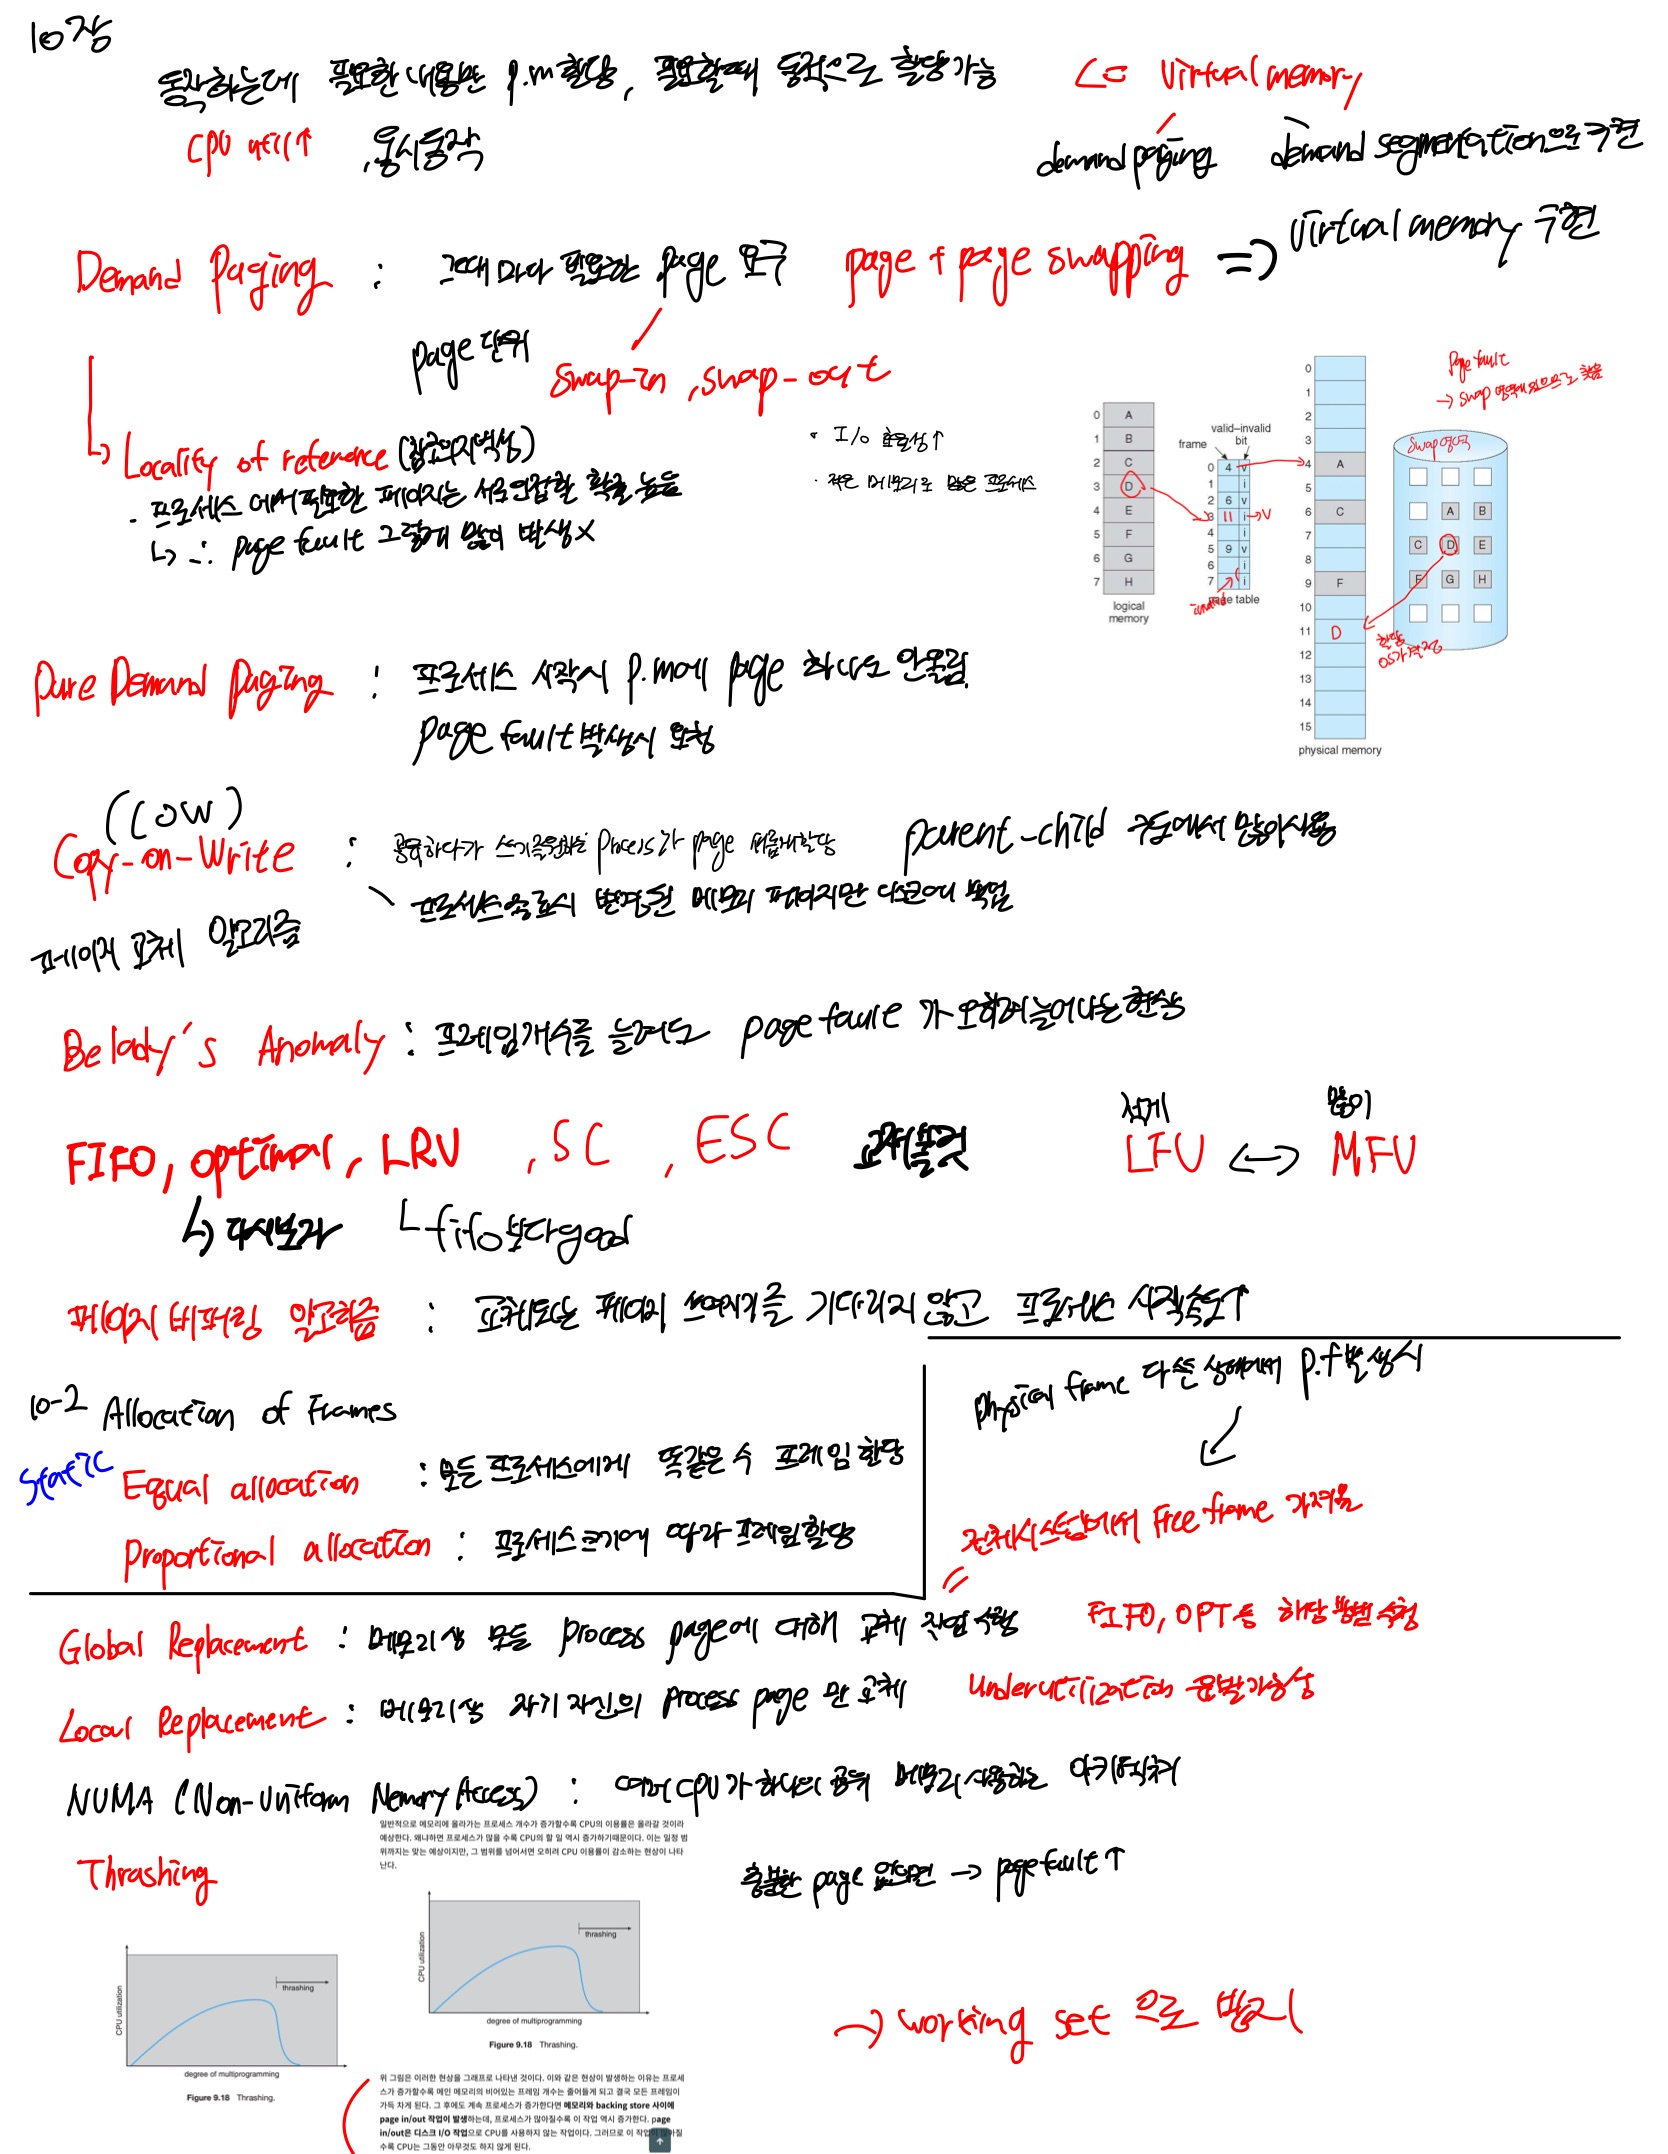 10장
동작하는데 필요한 내용만 p.m 할당, 필요할때 동적으로 할당가능 <= Virtual memory
CPU util↑ , 동시동작
demand paging demand segmentation으로 구현
Demand Paging : 그때마다 필요한 page 요구 page + page swapping => Virtual memory 구현
page 단위
swap-in, swap-out
↳ Locality of reference (참조의지역성)
· 프로세스에서 필요한 페이지는 서로인접할 확률 높음
↳ ∴ page fault 그렇게 많이 발생 X
· I/o 효율성↑
· 작은 메모리로 많은 프로세스
Page fault
→ swap 영역에있으므로 찾음
swap영역
valid–invalid
bit
frame
0 A
1 B
2 C
3 D
4 E
5 F
6 G
7 H
logical
memory
0 4 v
1 i
2 6 v
3 11 i → V
4 i
5 9 v
6 i
7 i
page table
0
1
2
3
4 A
5
6 C
7
8
9 F
10
11 D
12
13
14
15
physical memory
A B
C D E
F G H
할당
OS가 결정
Pure Demand Paging : 프로세스 시작시 p.m에 page 하나도 안올림
page fault 발생시 요청
(COW)
Copy-on-Write : 공유하다가 쓰기를원하는 Process가 page 새롭게할당 parent-child 구조에서 많이사용
프로세스종료시 변경된 메모리 페이지만 디스크에 백업
페이지 교체 알고리즘
Belady's Anomaly : 프레임개수를 늘려도 page fault 가 오히려늘어나는현상
FIFO, optimal, LRU , SC , ESC
적게 많이
LFU ↔ MFU
↳ 다시보자 fifo보다good
페이지 버퍼링 알고리즘 : 교체되는 페이지 쓰여지기를 기다리지 않고 프로세스 시작속도↑
10-2 Allocation of Frames
physical frame 다쓴상태에서 p.f발생시
static
Equal allocation : 모든 프로세스에게 똑같은 수 프레임 할당
전체시스템에서 Free frame 가져옴
Proportional allocation : 프로세스크기에 따라 프레임할당
Global Replacement : 메모리상 모든 process page에 대해 교체 작업 수행 FIFO, OPT등 해당 방법 수행
Local Replacement : 메모리상 자기 자신의 process page 만 교체 Underutilization 유발가능성
NUMA (Non-Uniform Memory Access) : 여러CPU가 하나의 공유 메모리사용하는 아키텍처
Thrashing
일반적으로 메모리에 올라가는 프로세스 개수가 증가할수록 CPU의 이용률은 올라갈 것이라
예상한다. 왜냐하면 프로세스가 많을 수록 CPU의 할 일 역시 증가하기때문이다. 이는 일정 범
위까지는 맞는 예상이지만, 그 범위를 넘어서면 오히려 CPU 이용률이 감소하는 현상이 나타
난다.
충분한 page 없으면 → page fault↑
CPU utilization
thrashing
degree of multiprogramming
Figure 9.18 Thrashing.
CPU utilization
thrashing
degree of multiprogramming
Figure 9.18 Thrashing.
→ working set 으로 방지
위 그림은 이러한 현상을 그래프로 나타낸 것이다. 이와 같은 현상이 발생하는 이유는 프로세
스가 증가할수록 메인 메모리의 비어있는 프레임 개수는 줄어들게 되고 결국 모든 프레임이
가득 차게 된다. 그 후에도 계속 프로세스가 증가한다면 메모리와 backing store 사이에
page in/out 작업이 발생하는데, 프로세스가 많아질수록 이 작업 역시 증가한다. page
in/out은 디스크 I/O 작업으로 CPU를 사용하지 않는 작업이다. 그러므로 이 작업이 많아질
수록 CPU는 그동안 아무것도 하지 않게 된다.